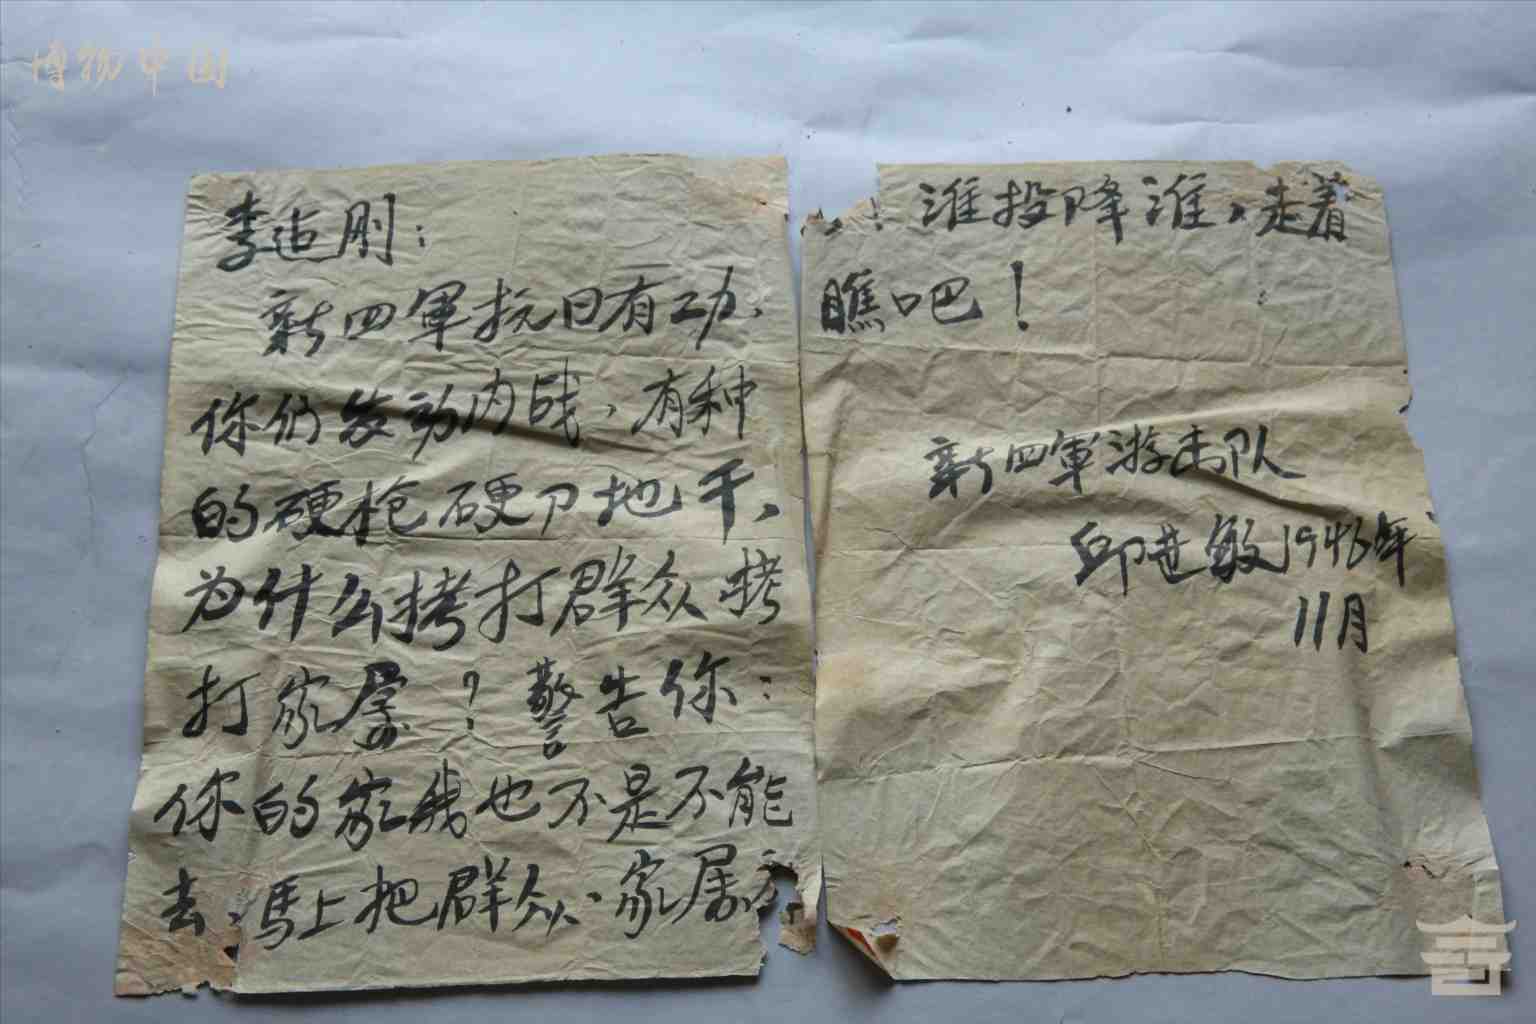 博物中国
李追刚:
新四軍抗日有功、
你们发动内战,有种
的硬枪硬刀地干,
为什么拷打群众拷
打家属?警告你:
你的家我也不是不能
去,馬上把群众、家属
!谁投降谁,走着
瞧吧!
新四軍游击队
邱世敏1946年
11月